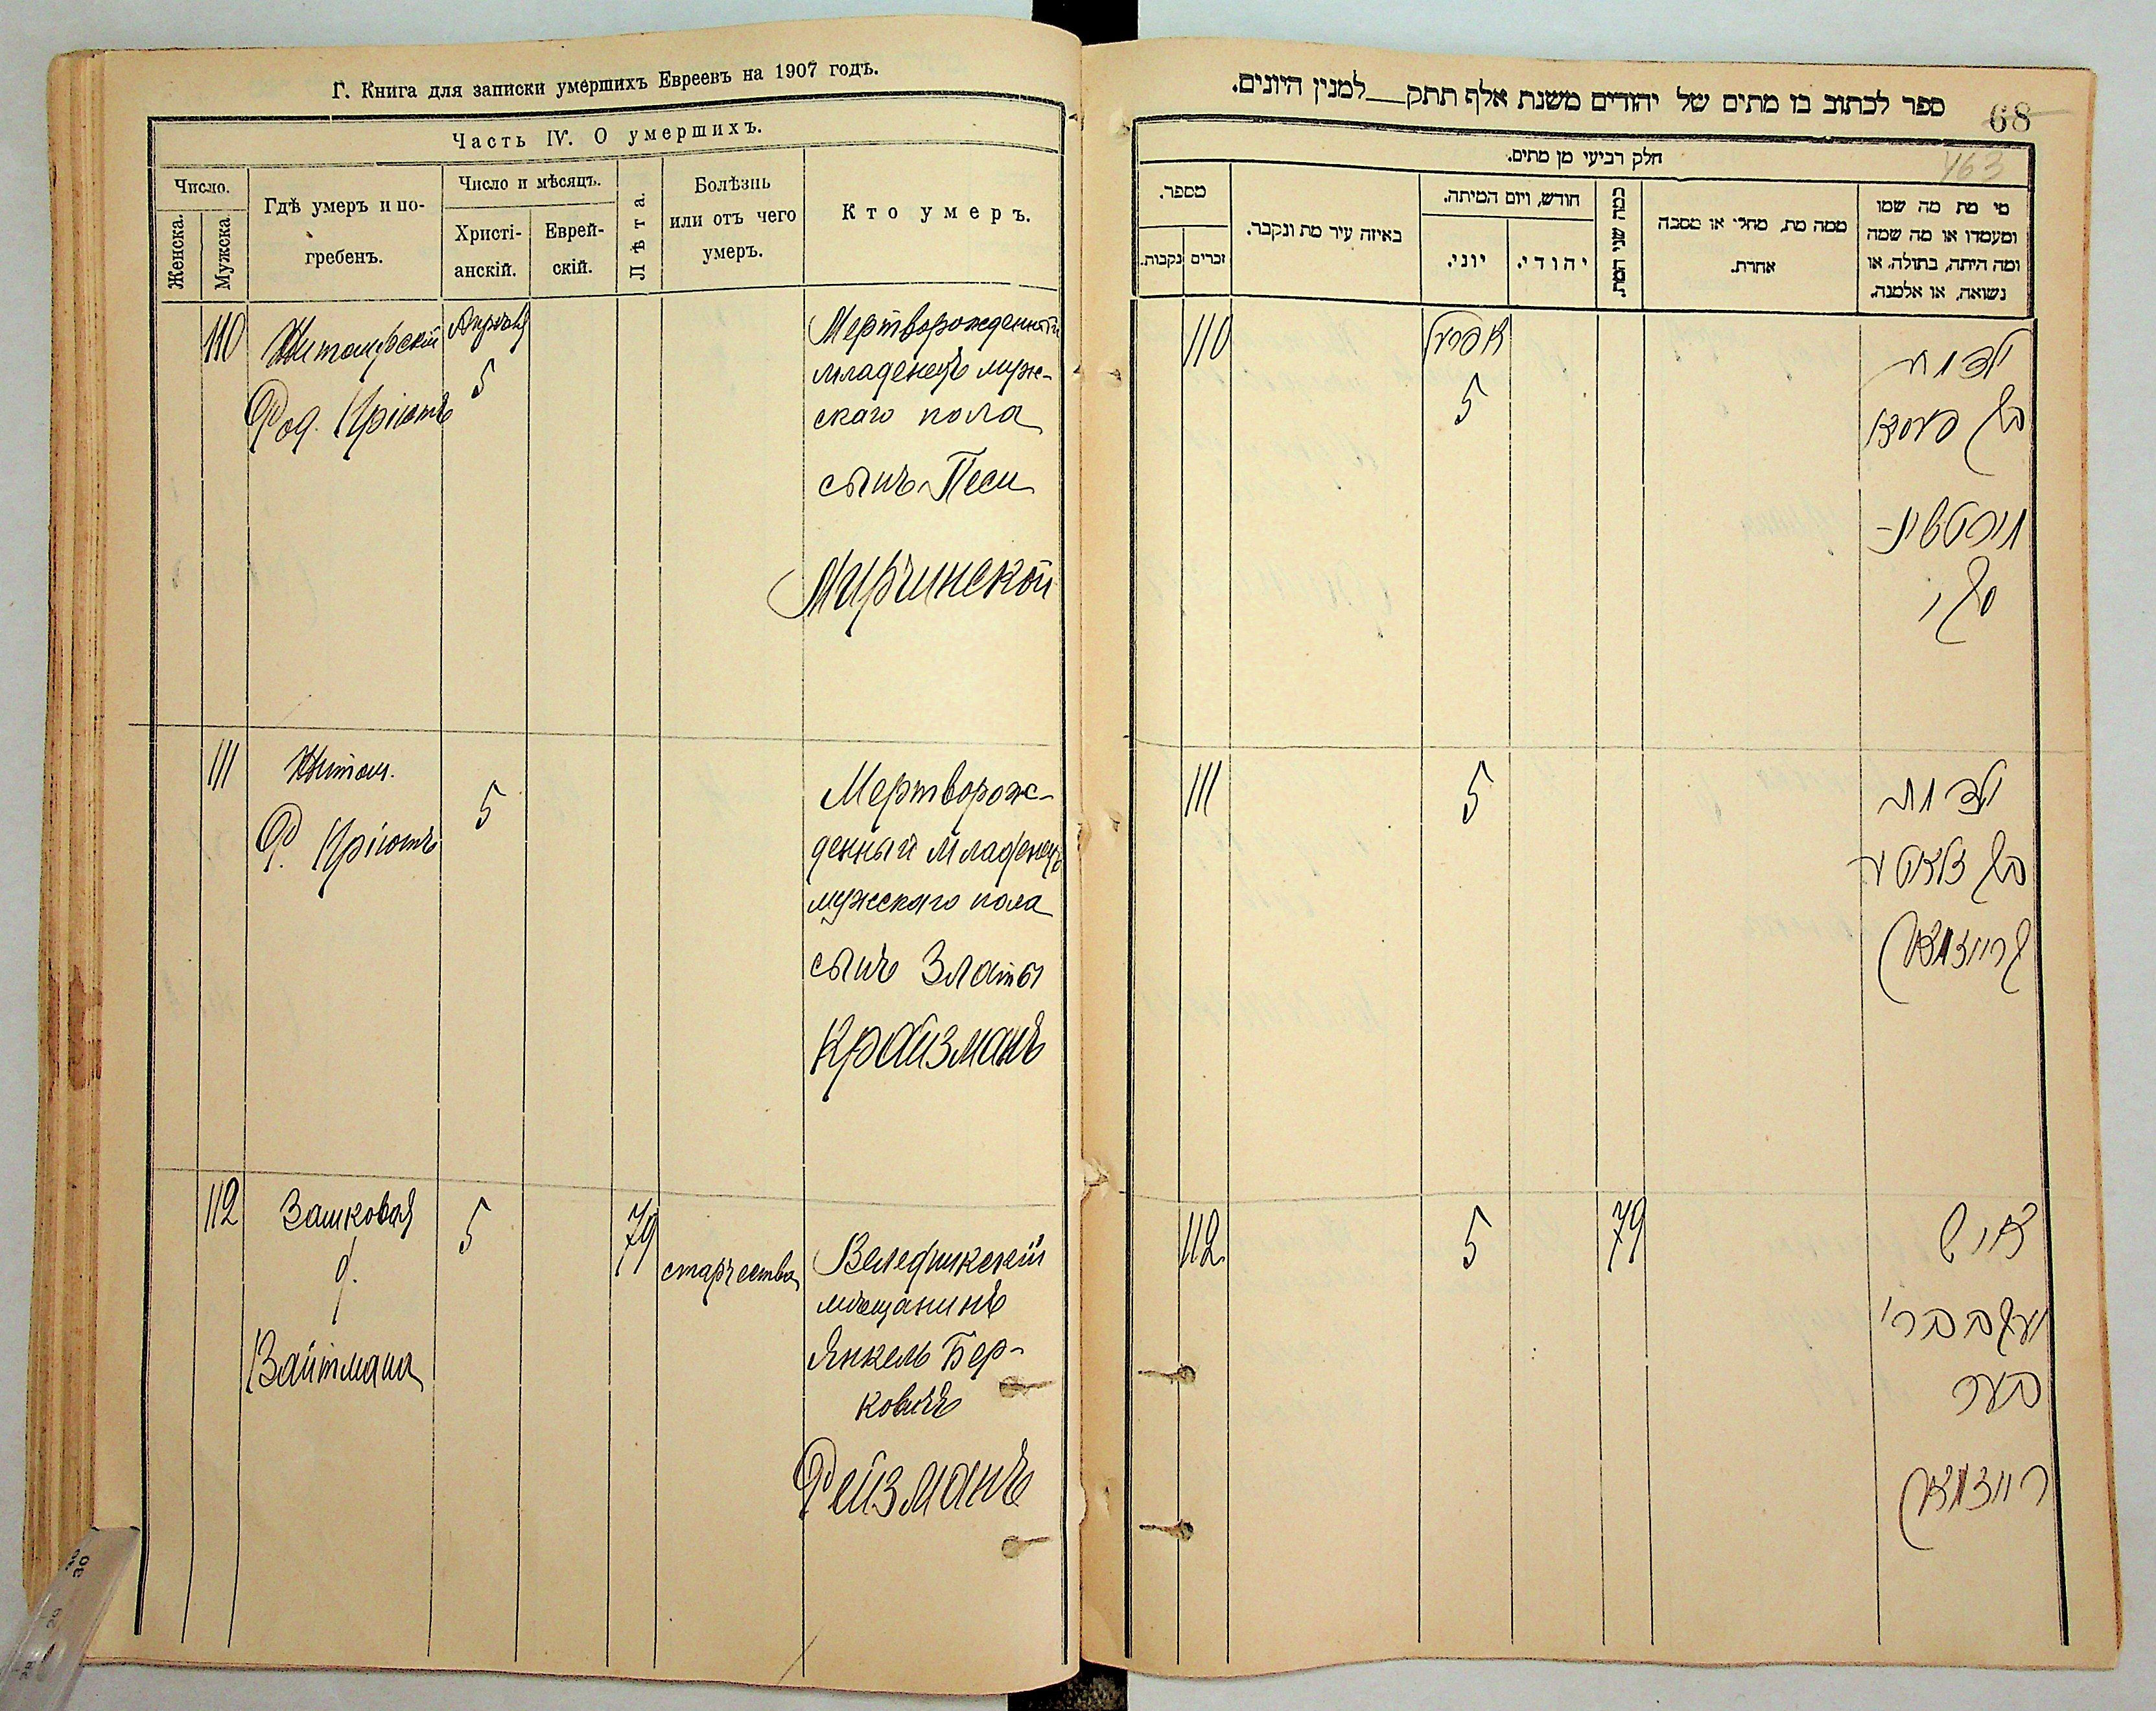 Г. Книга для записки умершихъ Евреевъ на 1907 годъ.
Часть IV. О умершихъ.
Число.
Женска.
Мужска
Гдѣ умеръ и по-
гребенъ.
Число и мѣсяцъ.
Христі-
анскій.
Еврей-
скій.
Лѣта.
Болѣзнь
или отъ чего
умеръ.
Кто умеръ.
110
Житомірскій
Род. Пріютъ
Апрѣля
5
Мертворожденный
младенецъ муж-
скаго пола
сынъ Песи
Мирчинской
111
Житом.
Р. Пріютъ
5
Мертворож-
денный младенецъ
мужскаго пола
сынъ Златы
Кройзманъ
112
Замковая
д.
Вайтмана
5
79
старчества
Веледникскій
мѣщанинъ
Янкель Бер-
ковичъ
Ройзманъ
ספר לכתוב בו מתים של יהודים משנת אלף תתק__למנין היונים.
68
463
חלק רביעי מן מתים.
מספר.
נקבות.
זכרים
באיזה עיר מת ונקבר.
חודש, ויום המיתה.
יוני.
יהודי.
כמה שני המת.
ממה מת, מחלי או מסבה
אחרת.
מי מת מה שמו
ומעמדו או מה שמה
ומה היתה, בתולה, או
נשואה, או אלמנה.
110
אפריל
5
ילד מת
בן פעסיא
מירטשינ-
סקי
111
5
ילד מת
בן זלאטע
קרויזמאן
112
5
79
איש
יעקב ב״ר
בער
רויזמאן